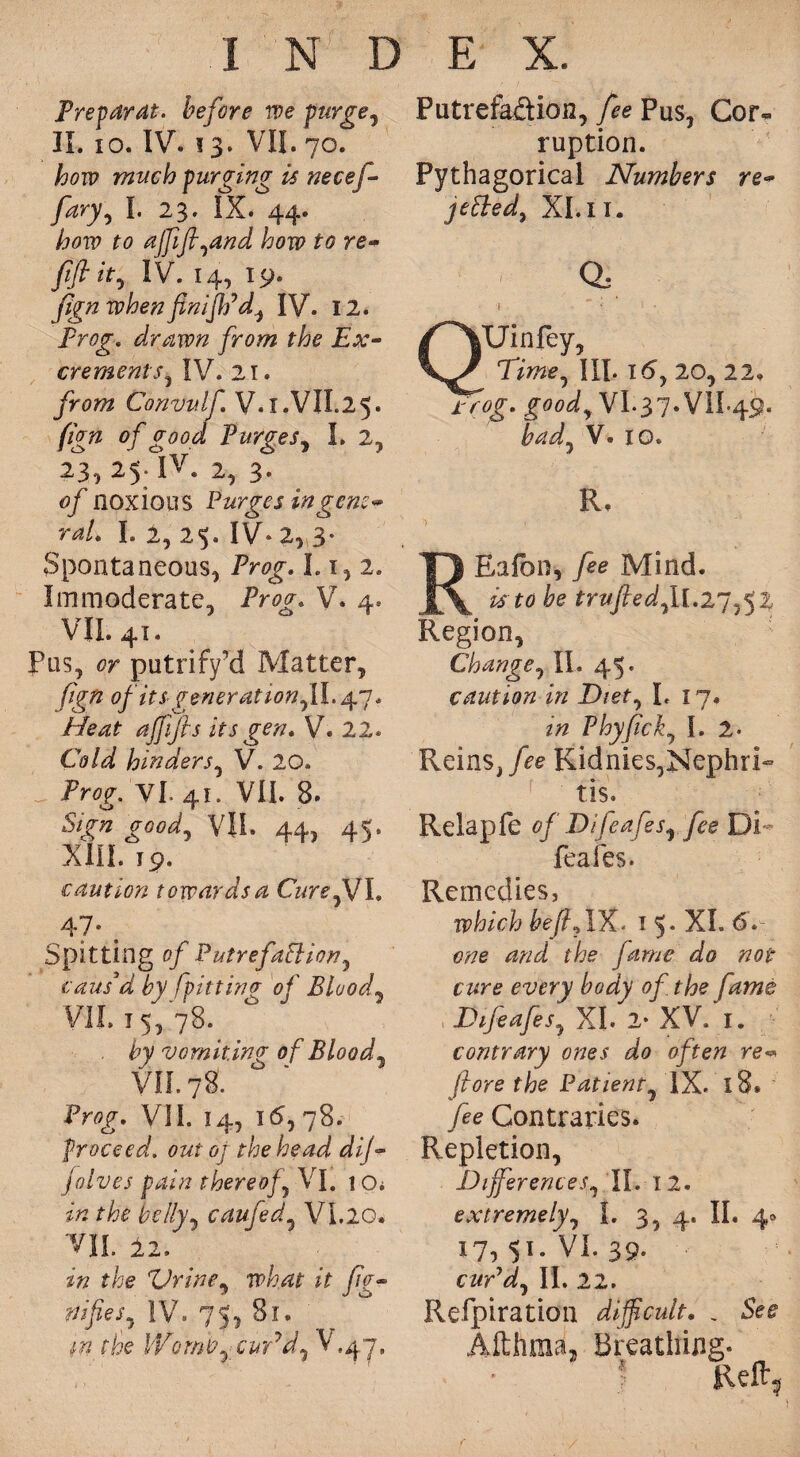 INDEX.
Preparat. before we purge,
II. 10. IV. 13. VII. 70.
how much purging is neceſ-
ſary, I. 23. IX. 44.
how to aſſiſt, and how to re-
ſiſt it, IV. 14, 19.
ſign when finiſh'd, IV. 12.
Prog. drawn from the Ex-
crements, IV. 21.
from Convulſ. V. 1. VII. 25.
ſign of good Purges, I. 2,
23, 25. IV. 2, 3.
of noxious Purges in gene-
ral. I. 2, 25. IV. 2, 3.
Spontaneous, Prog. I. 1, 2.
Immoderate, Prog. V. 4.
VII. 41.
Pus, or putrify'd Matter,
ſign of its generation, II. 47.
Heat aſſiſts its gen. V. 22.
Cold hinders, V. 20.
Prog. VI. 41. VII. 8.
Sign good, VII. 44, 45.
XIII. 19.
caution towards a Cure, VI.
47.
Spitting of Putrefaction,
caus'd by ſpitting of Blood,
VII. 15, 78.
by vomiting of Blood,
VII. 78.
Prog. VII. 14, 16, 78.
proceed. out of the head diſ-
ſolves pain thereof, VI. 10.
in the belly, cauſed, VI. 20.
VII. 22.
in the Urine, what it ſig-
nifies, IV. 75, 81.
in the Womb, cur'd, V. 47.
Putrefaction, ſee Pus, Cor-
ruption.
Pythagorical Numbers re-
jected, XI. 11.
Q.
QUinſey,
Time, III. 16, 20, 22.
Prog. good, VI. 37. VII. 49.
bad, V. 10.
R.
REaſon, ſee Mind.
is to be truſted, II. 27, 52
Region,
Change, II. 45.
caution in Diet, I. 17.
in Phyſick, I. 2.
Reins, ſee Kidnies, Nephri-
tis.
Relapſe of Diſeaſes, ſee Di-
ſeaſes.
Remedies,
which beſt, IX. 15. XI. 6.
one and the ſame do not
cure every body of the ſame
Diſeaſes, XI. 2. XV. 1.
contrary ones do often re-
ſtore the Patient, IX. 18.
ſee Contraries.
Repletion,
Differences, II. 12.
extremely, I. 3, 4. II. 4.
17, 51. VI. 39.
cur'd, II. 22.
Reſpiration difficult. See
Aſthma, Breathing.
Reſt,